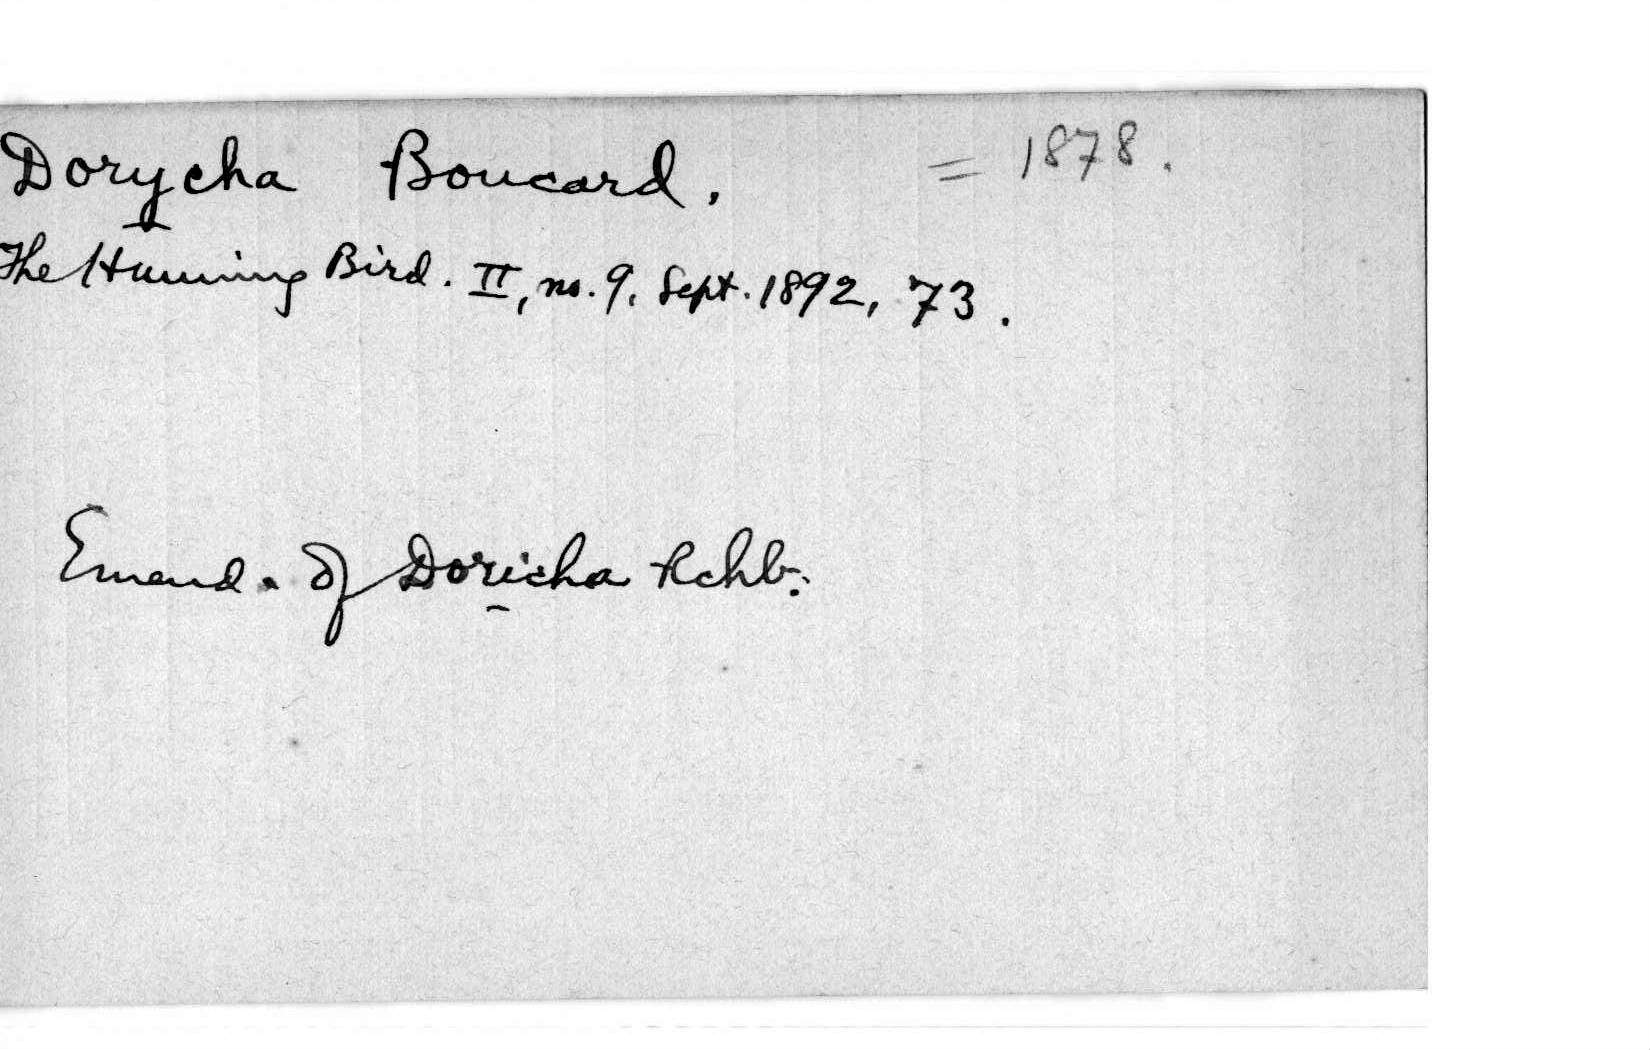 Dorycha Boucard. = 1878.
The Humming Bird. II, no. 9, Sept. 1892, 73.
Emend. of Doricha Rchb.